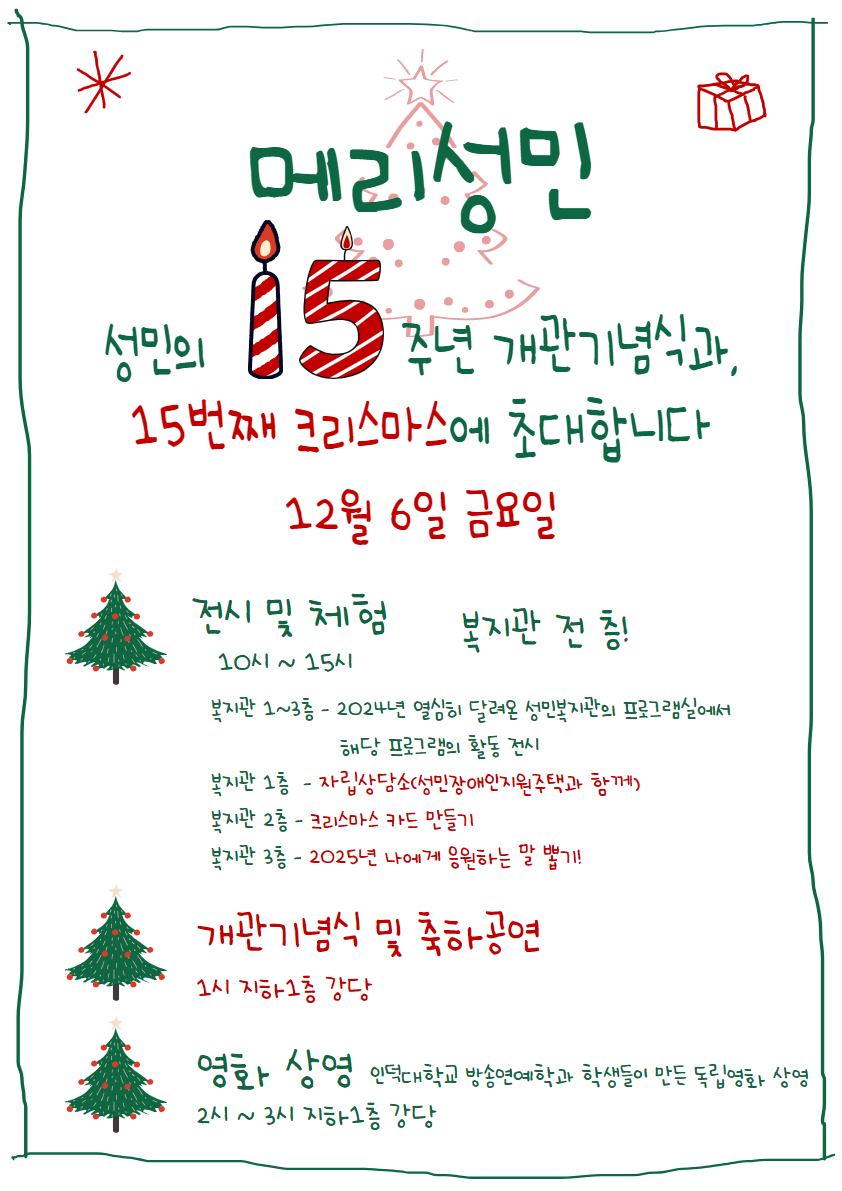 메리성민
성민의 15 주년 개관기념식과,
15번째 크리스마스에 초대합니다
12월 6일 금요일
전시 및 체험 복지관 전 층!
10시 ~ 15시
복지관 1~3층 - 2024년 열심히 달려온 성민복지관의 프로그램실에서
해당 프로그램의 활동 전시
복지관 1층 - 자립상담소(성민장애인지원주택과 함께)
복지관 2층 - 크리스마스 카드 만들기
복지관 3층 - 2025년 나에게 응원하는 말 뽑기!
개관기념식 및 축하공연
1시 지하1층 강당
영화 상영 인덕대학교 방송연예학과 학생들이 만든 독립영화 상영
2시 ~ 3시 지하1층 강당